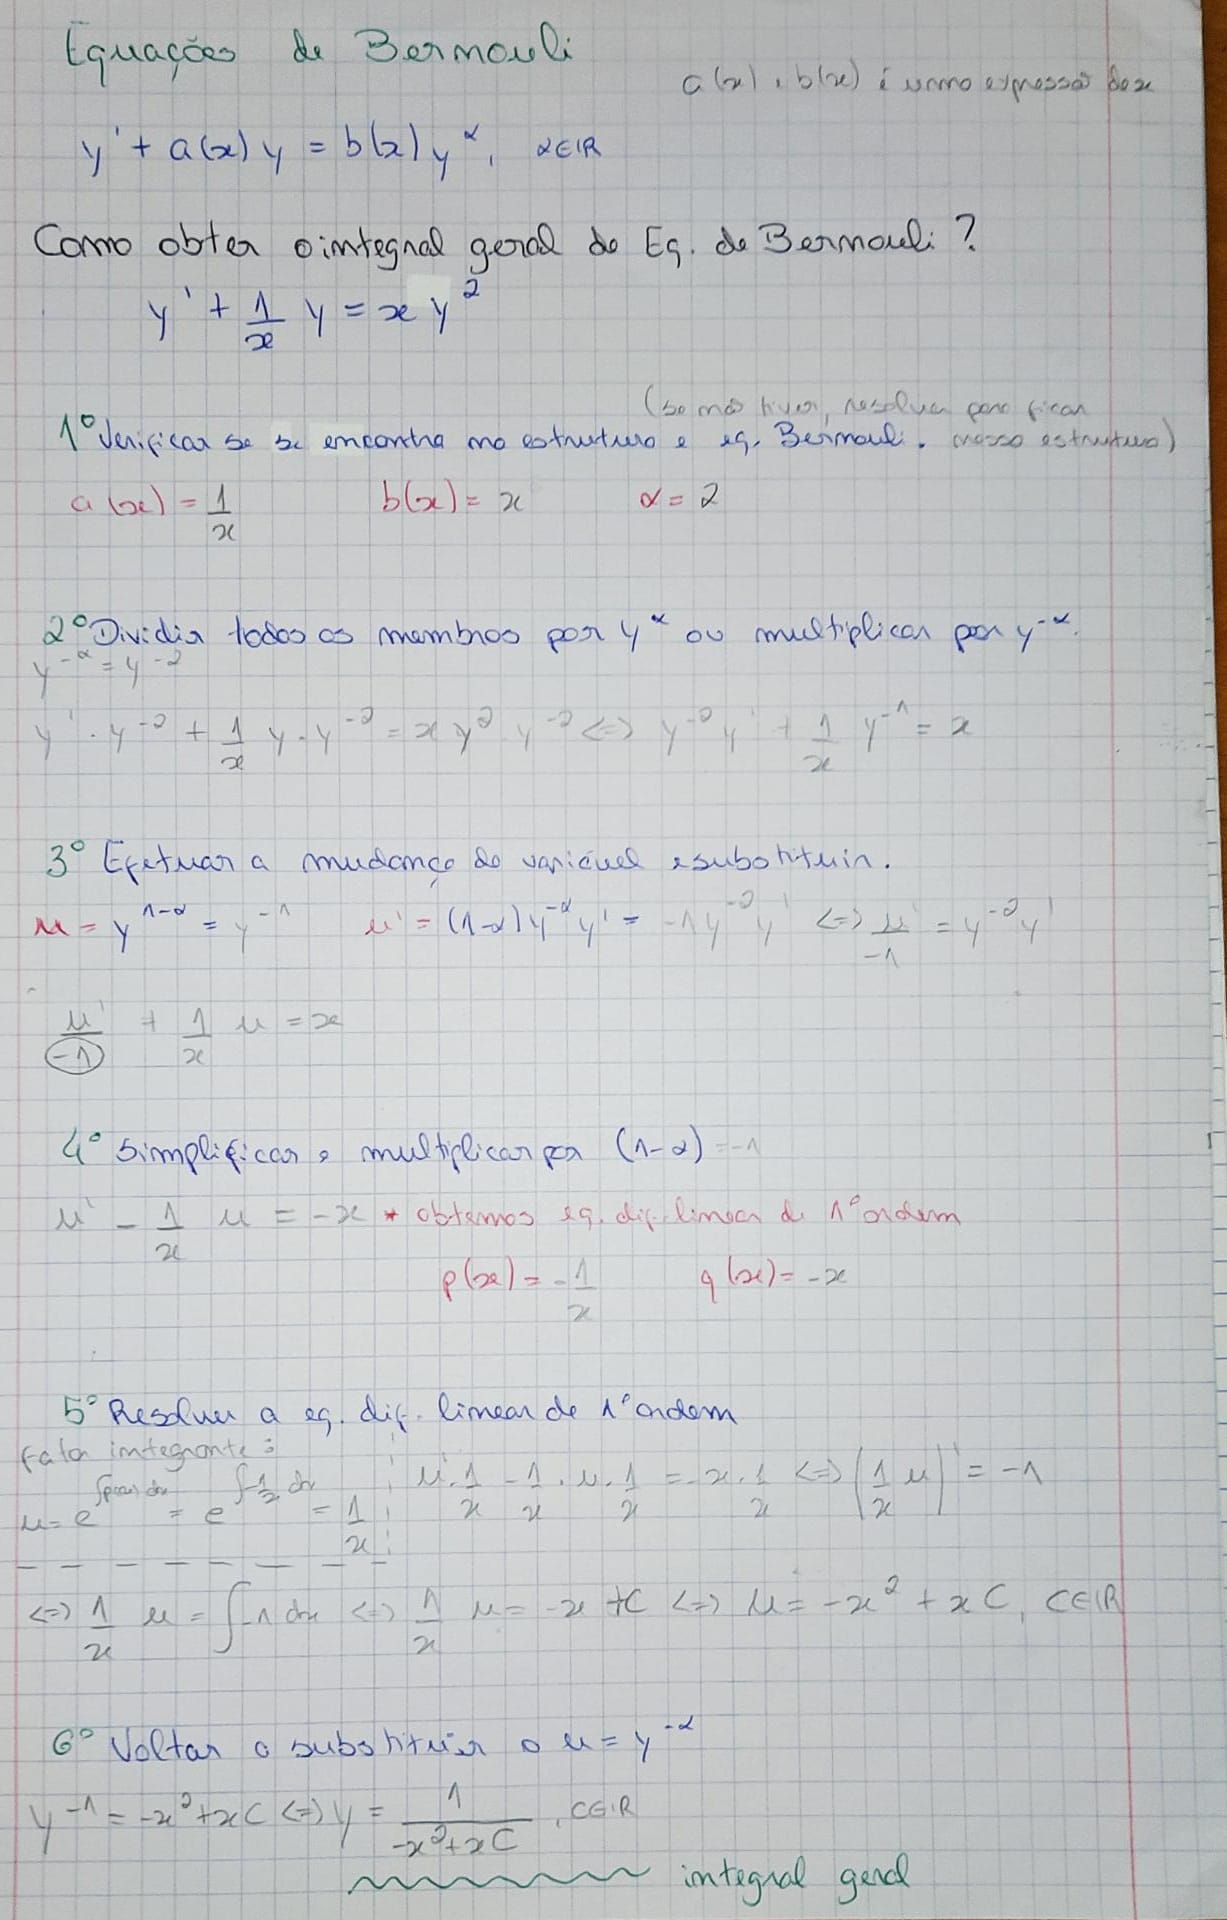 Equações de Bernouli
a(x), b(x) é uma expressão de x
y' + a(x) y = b(x) y^α, α∈ℝ
Como obter o integral geral da Eq. de Bernouli?
y' + 1/x y = x y^2
(se não tiver, resolver para ficar
1º Verificar se se encontra na estrutura e eq. Bernouli. nessa estrutura)
a(x) = 1/x b(x) = x α = 2
2º Dividir todos os membros por y^α ou multiplicar por y^-α.
y^-α = y^-2
y' . y^-2 + 1/x y . y^-2 = x y^2 y^-2 <=> y^-2 y' + 1/x y^-1 = x
3º Efetuar a mudança de variável e substituir.
u = y^1-α = y^-1 u' = (1-α) y^-α y' = -1 y^-2 y' <=> u'/-1 = y^-2 y'
u'/-1 + 1/x u = x
4º Simplificar e multiplicar por (1-α) = -1
u' - 1/x u = -x * obtemos eq. dif. linear de 1º ordem
p(x) = -1/x q(x) = -x
5º Resolver a eq. dif. linear de 1º ordem
Fator integrante:
u = e^∫p(x) dx = e^∫-1/x dx = 1/x u' . 1/x - 1/x . u . 1/x = -x . 1/x <=> (1/x u)' = -1
<=> 1/x u = ∫-1 dx <=> 1/x u = -x + C <=> u = -x^2 + xC, C∈ℝ
6º Voltar a substituir o u = y^-α
y^-1 = -x^2 + xC <=> y = 1/(-x^2 + xC), C∈ℝ
integral geral